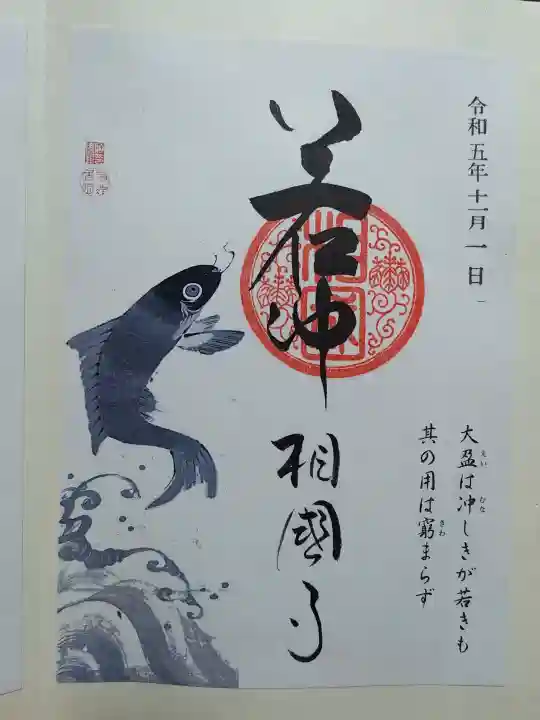 令和五年十一月一日
大盈は冲しきが若きも
えい むな
其の用は窮まらず
きわ
若冲
相國寺